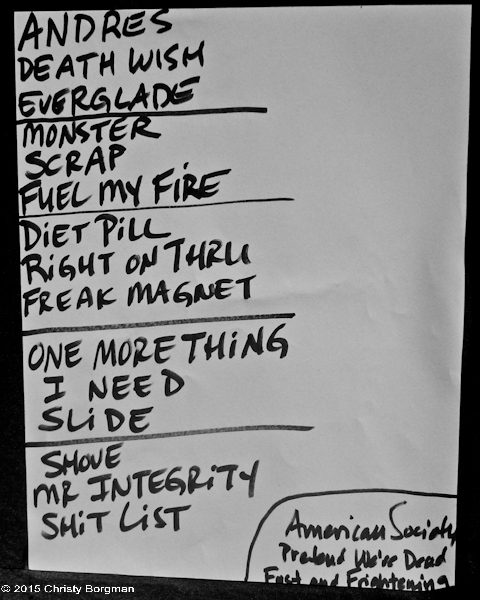 ANDRES
DEATH WISH
EVERGLADE
MONSTER
SCRAP
FUEL MY FIRE
DIET PILL
RIGHT ON THRU
FREAK MAGNET
ONE MORE THING
I NEED
SLIDE
SHOVE
MR INTEGRITY
SHIT LIST
American Society
Pretend We're Dead
Fast and Frightening
© 2015 Christy Borgman